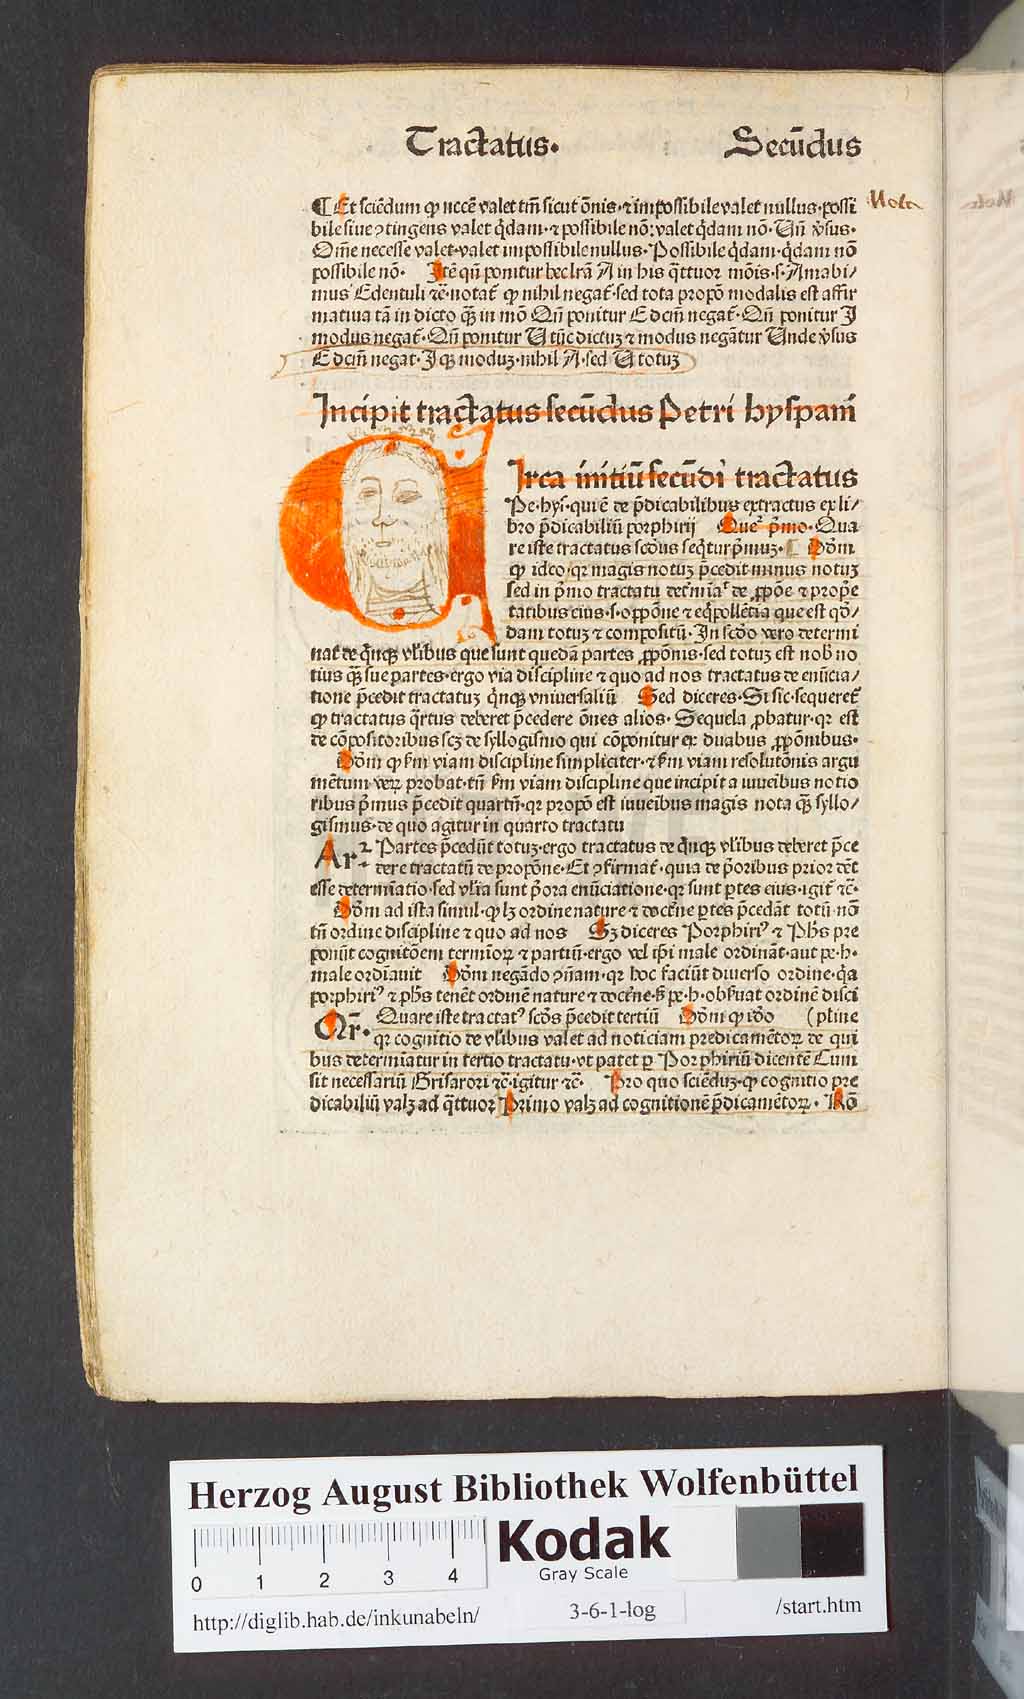 Tractatus. Secūdus
¶ Et sciēdum ꝙ nccē valet tm̄ sicut ōnis·⁊ impossibile valet nullus·possi
Nota
bile siue ↄtingens valet q̄dam·⁊ possibile nō: valet q̄dam nō· Vn̄ v̓sus·
Om̄e necesse valet·valet impossibile nullus· Possibile q̄dam·q̄dam nō
possibile nō· Itē qn̄ ponitur hec lrā A in his q̄ttuor mōis·s·Amabi/
mus Edentuli ⁊c̄·notat̄ ꝙ nihil negat̄·sed tota propō modalis est affir
matiua tā in dicto qȝ in mō Qn̄ ponitur E dcm̄ negat̄· Qn̄ ponitur I
modus negat̄· Qn̄ ponitur U tūc dictuȝ ⁊ modus negātur Unde v̓sus
E dcm̄ negat· I qȝ moduȝ·nihil A·sed U totuȝ
Incipit tractatus secūdus Petri hyspani
Irca initiū secūdi tractatus
Pe·hys̓·qui ē de p̄dicabilibus extractus ex li/
bro p̄dicabiliū porphirij Querꝰ p̄mo· Qua
re iste tractatus scd̓us seq̄tur p̄muȝ· ¶ Dō̓m
ꝙ ideo·qꝛ magis notuȝ p̄cedit minus notuȝ
sed in p̄mo tractatu det̓mīat̓ de ꝓpōe ⁊ propē
tatibus eius·s·oppōne ⁊ eq̄pollētia que est qō/
dam totuȝ ⁊ compositū· In scd̓o vero determi
nat̄ de q̄nqȝ vl̓ibus que sunt quedā partes ꝓpōnis·sed totuȝ est nob̓ no
tius qȝ sue partes·ergo via discipline ⁊ quo ad nos tractatus de enūcia/
tione p̄cedit tractatuȝ q̄nqȝ vniuersaliū Sed diceres· Si sic·sequeret̄
ꝙ tractatus q̄rtus deberet p̄cedere ōnes alios· Sequela ꝓbatur·qꝛ est
de cōpositoribus scȝ de syllogismo qui cōponitur ex duabus ꝓpōnibus·
Dō̓m ꝙ km̄ viam discipline simpliciter·⁊ km̄ viam resolutōnis argu
mētum veꝝ probat·tn̄ km̄ viam discipline que incipit a iuueībus notio
ribus p̄mus p̄cedit quartū·qꝛ propō est iuueībus magis nota qȝ syllo/
gismus·de quo agitur in quarto tractatu
Ar2· Partes p̄cedūt totuȝ·ergo tractatus de q̄nqȝ vl̓ibus deberet p̄ce
dere tractatū de propōne· Et ↄfirmat̄·quia de p̄oribus prior dēt
esse determīatio·sed vl̓ia sunt p̄ora enūciatione·qꝛ sunt ptes eius·igit̄ ⁊c̄·
Dō̓m ad ista simul·ꝙ lȝ ordine nature ⁊ doct̓ne ptes p̄cedāt totū·nō
tn̄ ordine discipline ⁊ quo ad nos Sȝ diceres Porphiriꝰ ⁊ Ph̓s pre
ponūt cognitōem termīoꝝ ⁊ partiū·ergo vel ip̄i male ordināt·aut pe·h·
male ordīauit Dō̓m negādo ↄn̄am·qꝛ hoc faciūt diuerso ordine·q̄a
porphiriꝰ ⁊ ph̓s tenēt ordinē nature ⁊ doct̓ne·ß pe·h·obßuat ordinē disci
Qr̄· Quare iste tractatꝰ scd̓s p̄cedit tertiū Dō̓m ꝙ id̓o (pline
qꝛ cognitio de vl̓ibus valet ad noticiam predicamētoꝝ de qui
bus determīatur in tertio tractatu·vt patet ꝑ Porphiriū dicentē Cum
sit necessariū Grisarori ⁊c̄·igitur ⁊c̄· Pro quo sciēduȝ·ꝙ cognitio pre
dicabiliū valȝ ad q̄ttuor Primo valȝ ad cognitionē p̄dicamētoꝝ· Rō
Herzog August Bibliothek Wolfenbüttel
0 1 2 3 4
Kodak
Gray Scale
http://diglib.hab.de/inkunabeln/ 3-6-1-log /start.htm